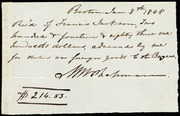 Boston Jan 8th 1848
Rec'd of Francis Jackson, Two
hundred & fourteen & eighty three one
hundredths dollars, advanced by me
for duties on foreign goods to the Bazaar
M W Chapman
$ 214.83.